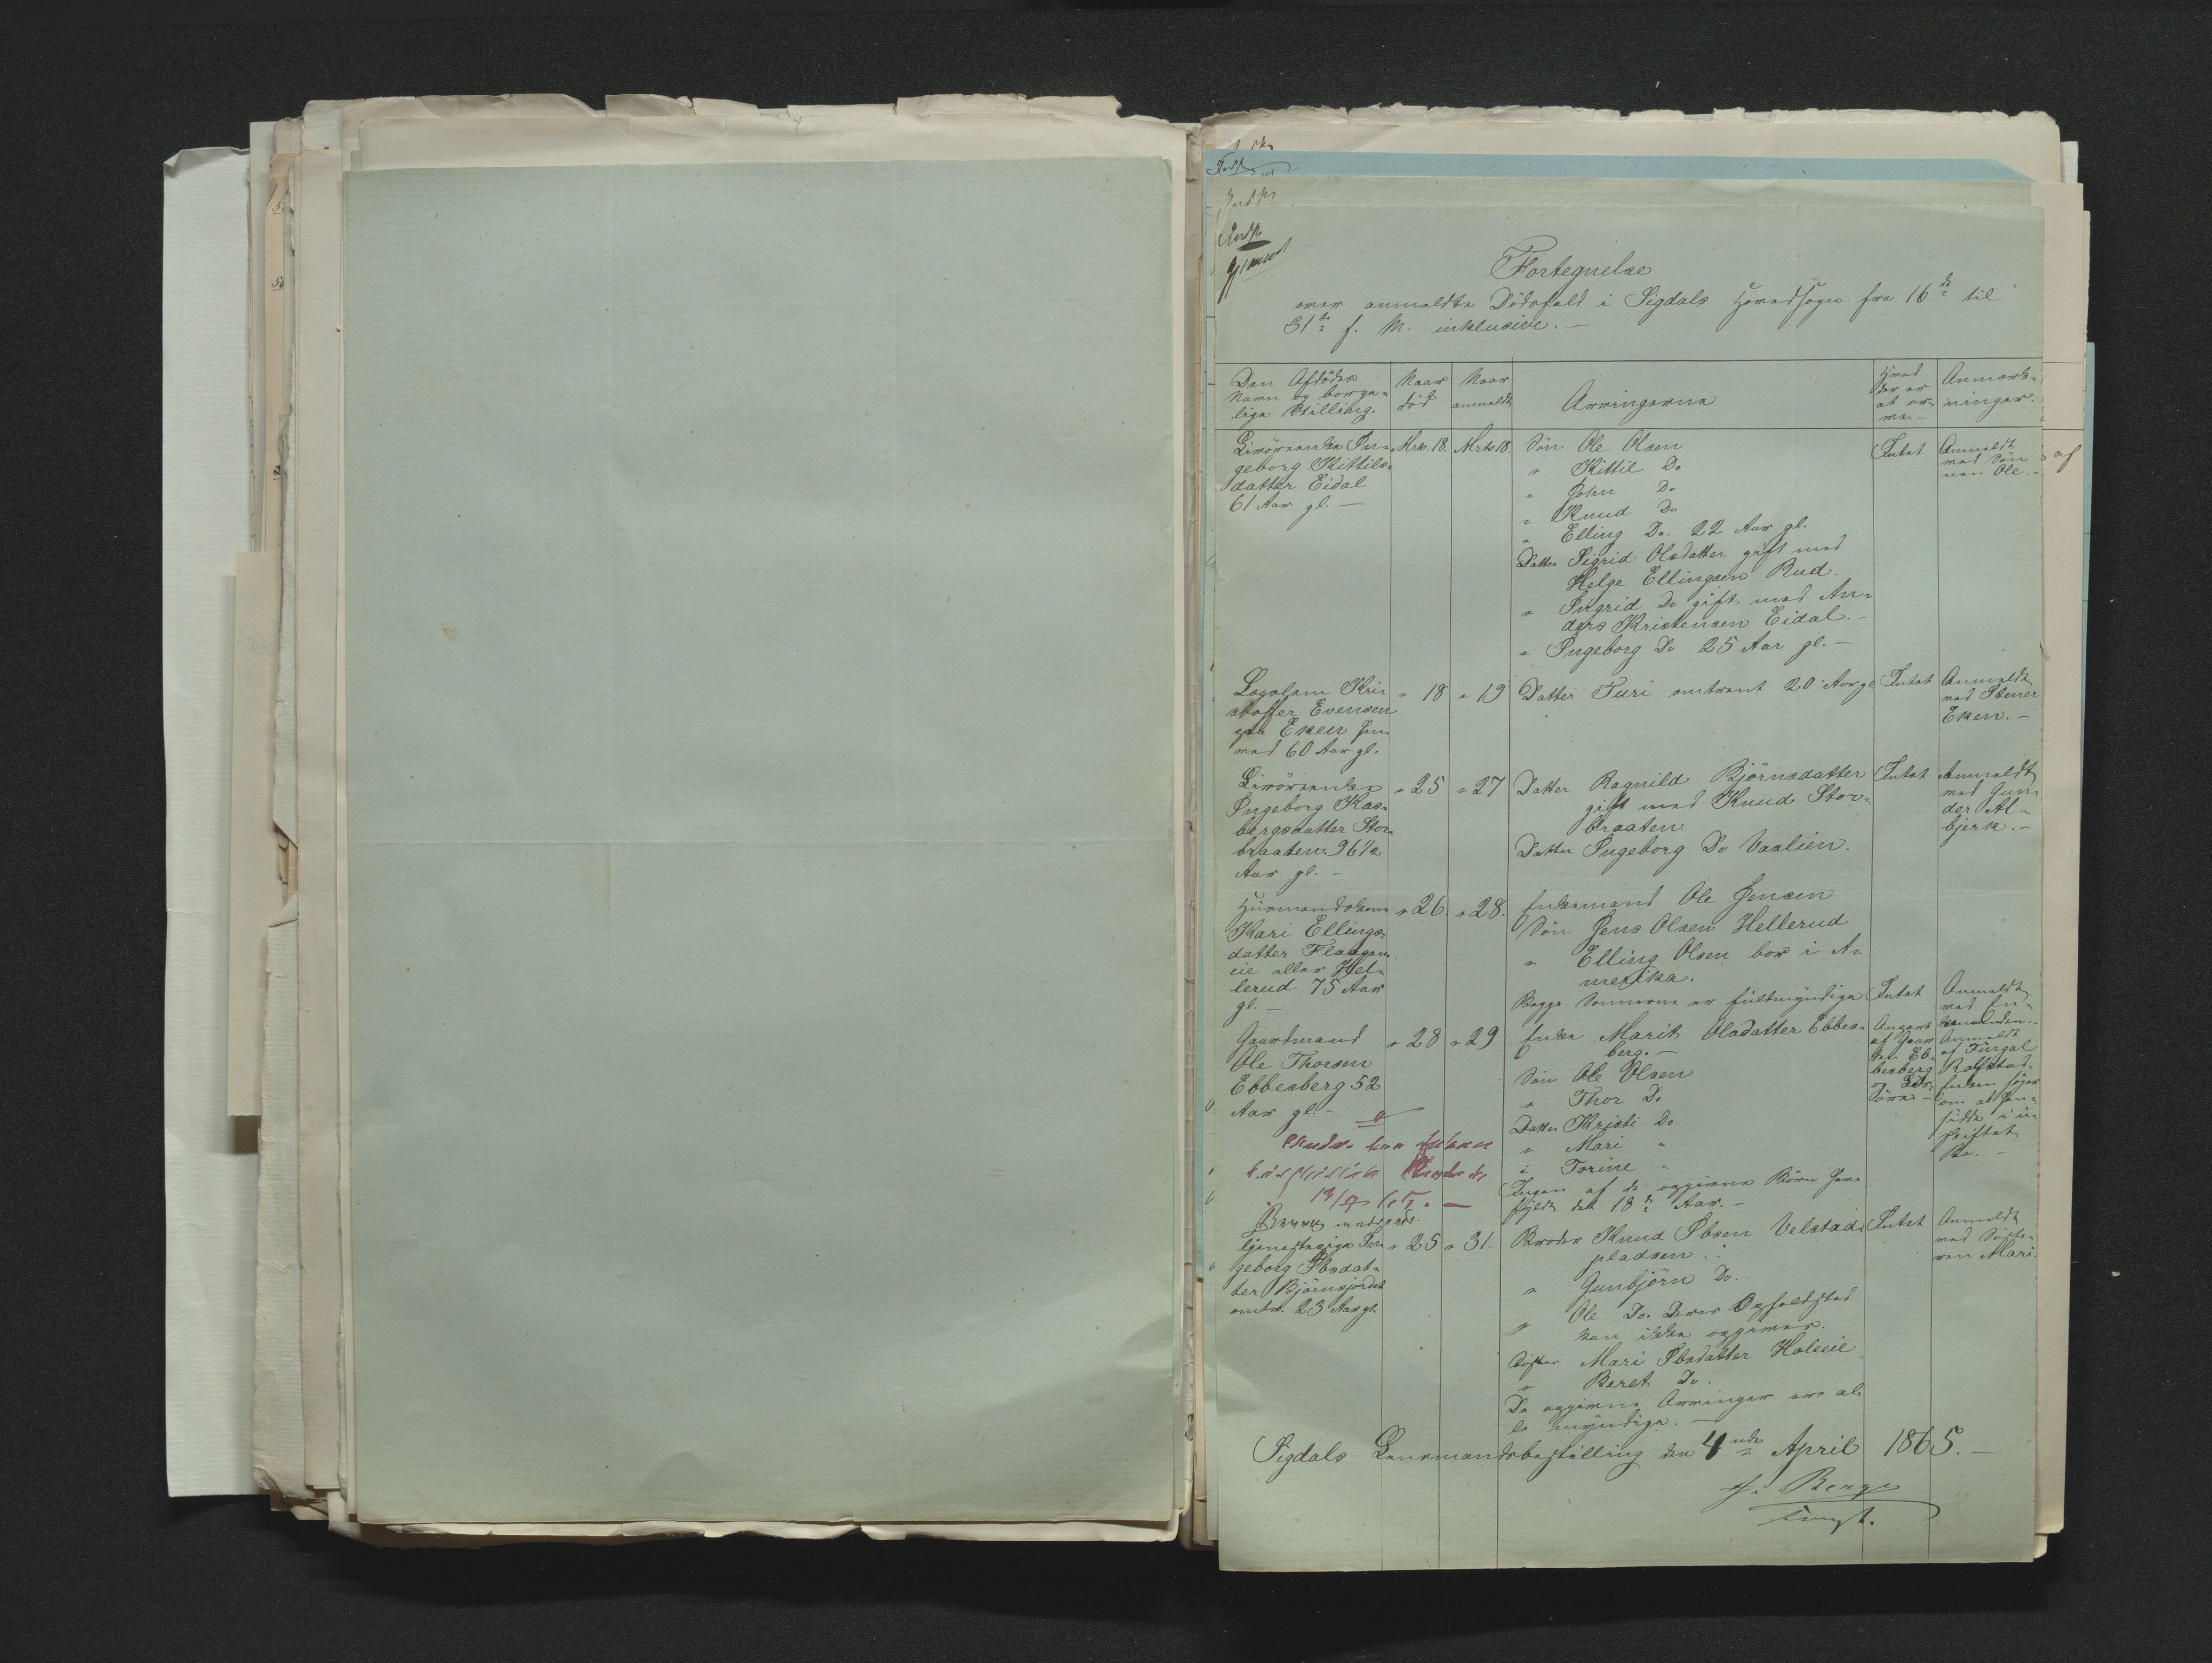 Fortegnelse
over anmeldte Dödsfald i Sigdals Hovedsogn fra 16de til
31te f. M. inklusive. —
Den Afdödes
Navn og borger-
lige Stilling.
Naar
död
Naar
anmeldt
Arvingerne
Hvad
der er
at ar-
ve. —
Anmærk-
ninger.
Livörende In-
geborg Kittils-
datter Eidal
61 Aar gl. —
Mrts. 18.
Mrts 18.
Sön Ole Olsen
" Kittil Do
" John Do
" Knud Do
" Elling Do. 22 Aar gl.
Datter Sigrid Olsdatter gift med
Helge Ellingsen Rud.
" Ingrid Do gift med An-
ders Kristensen Eidal. —
" Ingeborg Do 25 Aar gl. —
Intet
Anmeldt
ved Sön
nen Ole. —
af
Logslem Kri-
stoffer Evensen
paa Eken
60 Aar gl.
" 18
" 19
Datter Turi omtrent 20 Aar gl
Intet
Anmeldt
ved Stener
Eken. —
Livörende
Ingeborg Kas-
bergsdatter Stor-
braaten 96½
Aar gl. —
" 25
" 27
Datter Ragnild Björnsdatter
gift med Knud Stor-
braaten
Datter Ingeborg Do Vaalien.
Intet
Anmeldt
ved Gun-
der Al-
bjerk. —
Huusmandskone
Kari Ellings-
datter
eie eller Hel-
lerud 75 Aar
gl. —
" 26.
" 28.
Enkemand Ole Jensen
Sön Jens Olsen Hellerud
" Elling Olsen bor i A-
merika.
Begge Sönnerne er fuldmyndige
Intet
Anmeldt
ved En-
kemanden. —
Gaardmand
Ole Thorsen
Ebbesberg 52
Aar gl. —
" 28
" 29
Enke Marit Olsdatter Ebbes-
berg. —
Sön Ole Olsen
" Thor Do
Datter Kristi Do
" Mari "
" Torine "
Ingen af de opgivne Börn have
fyldt det 18de Aar. —
af Gaar
den Eb-
besberg
og
Anmeldt
af Fingal
Rolfstad.
Enken
om at
sidde i u-
skiftet
Bo. —
13/9 65. —
tjenestepige In-
geborg Ibsdat-
ter Björnsjordet
omtr. 23 Aar gl.
" 25
" 31.
Broder Knud Ibsen Velstad-
pladsen
" Gunbjörn Do.
" Ole Do. Deres Opholdsted
kan ikke opgives.
Söster Mari Ibsdatter Holeeie
" Beret Do.
De opgivne Arvinger ere al-
le myndige. —
Intet
Anmeldt
ved Söste-
ren Mari
Sigdals Lensmandsbestilling den 4nde April 1865. —
Berge